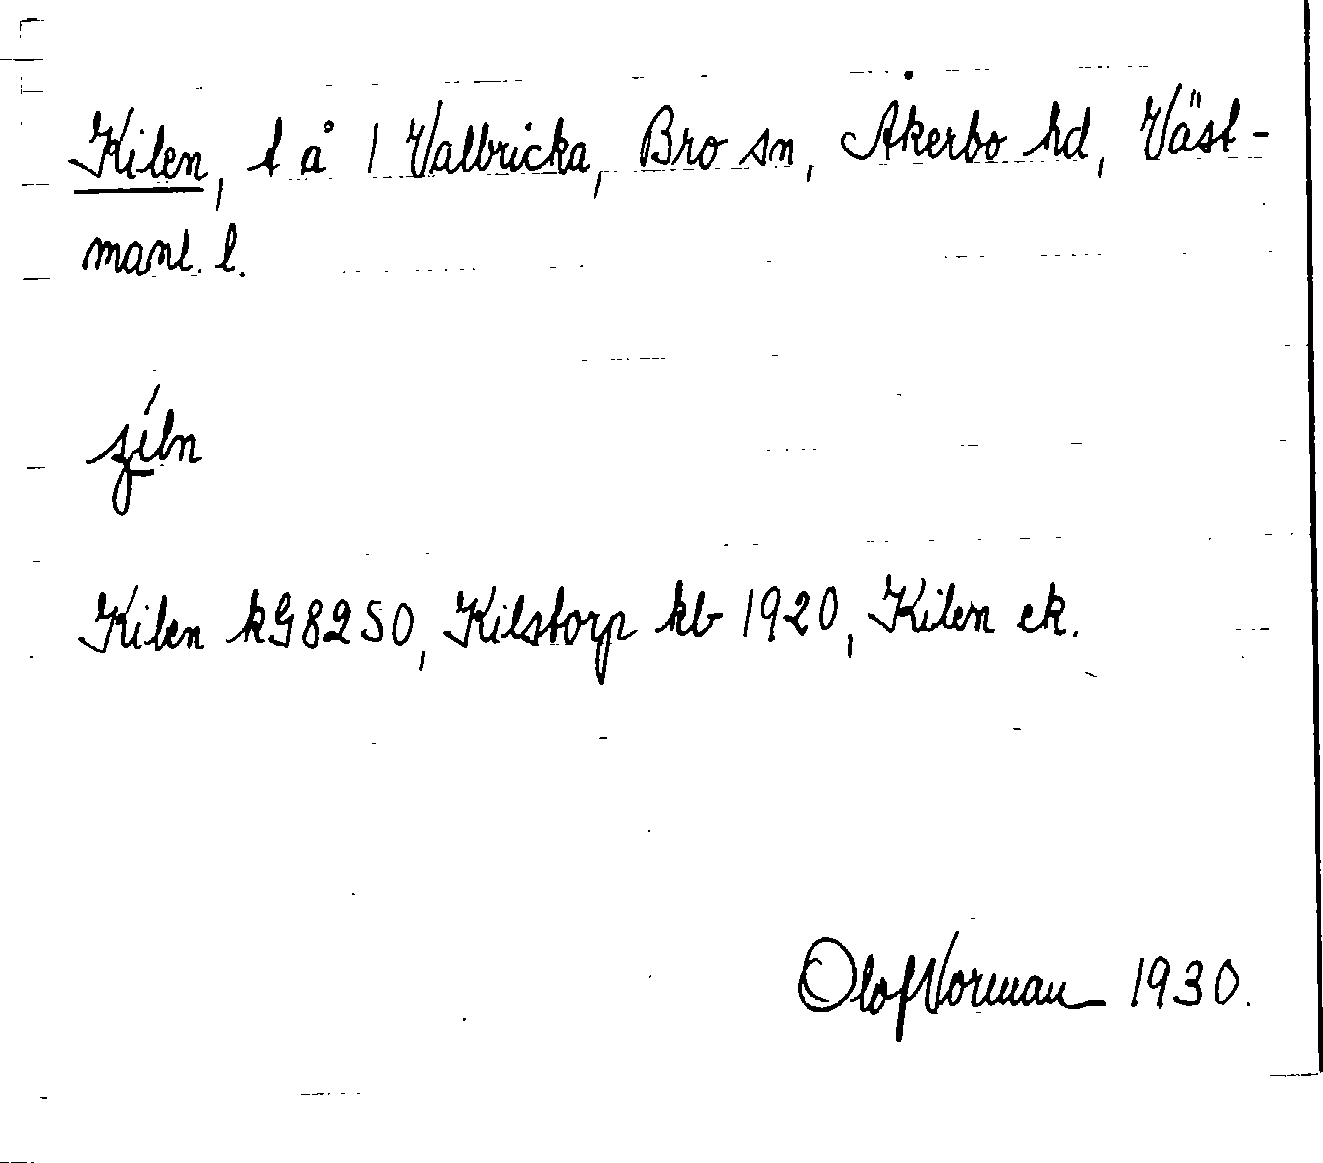 Kilen, t å 1 Valbricka, Bro sn, Åkerbo hd, Väst-
manl. l.
Kilen kG8250, Kilstorp kb 1920, Kilen ek.
Olof Norman 1930.